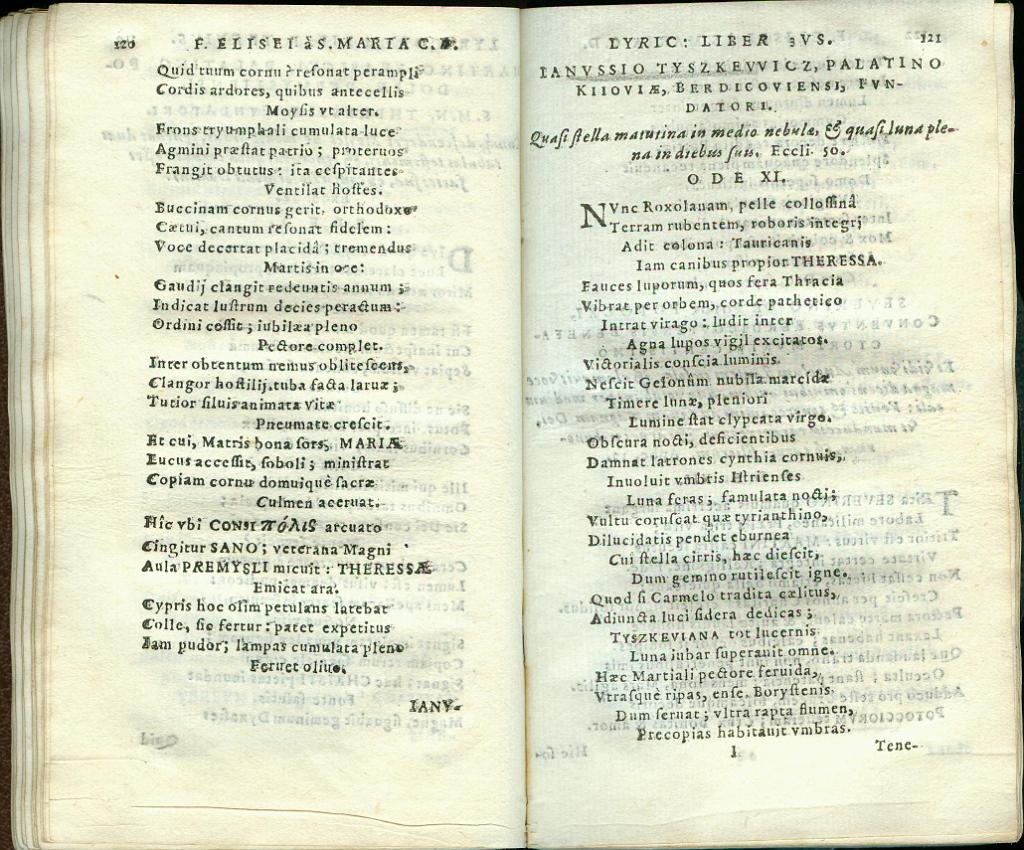 120 F. ELISEI à S. MARIA C. D.
Quid tuum cornu? resonat perampli
Cordis ardores, quibus antecellis
Moysis vt alter.
Frons tryumphali cumulata luce
Agmini præstat patrio; proteruos
Frangit obtutus: ita cespitantes
Ventilat hostes.
Buccinam cornus gerit, orthodoxo
Cætui, cantum resonat fidelem:
Voce decertat placidâ; tremendus
Martis in ore:
Gaudij clangit redeuntis annum;
Indicat lustrum decies peractum:
Ordini cossit; iubilæa pleno
Pectore complet.
Inter obtentum nemus oblitescens,
Clangor hostilij tuba facta laruæ;
Tutior siluis animata vitæ
Pneumate crescit.
Et cui, Matris bona sors, MARIÆ
Eucus accessit, soboli; ministrat
Copiam cornu domuique sacræ
Culmen aceruat.
Hîc vbi CONSI πόλις arcuato
Cingitur SANO; veterana Magni
Aula PREMYSLI micuit: THERESSÆ
Emicat ara.
Cypris hoc olim petulans latebat
Colle, sic fertur: patet expetitus
Iam pudor; lampas cumulata pleno
Feruet oliuo.
IANV-
LYRIC: LIBER 3VS. 121
IANVSSIO TYSZKEVVICZ, PALATINO
KIIOVIÆ, BERDICOVIENSI, FVN-
DATORI.
Quasi stella matutina in medio nebulæ, & quasi luna ple-
na in diebus suis. Eccli. 50.
ODE XI.
NVnc Roxolanam, pelle collossinâ
Terram rubentem, roboris integrj
Adit colona: Tauricanis
Iam canibus propior THERESSA.
Fauces luporum, quos fera Thracia
Vibrat per orbem, corde pathetico
Intrat virago: ludit inter
Agna lupos vigil excitatos.
Victorialis conscia luminis
Nescit Gelonûm nubila marcidæ
Timere lunæ, pleniori
Lumine stat clypeata virgo.
Obscura nocti, deficientibus
Damnat latrones cynthia cornuis,
Inuoluit vmbris Istrienses
Luna feras; famulata nocti;
Vultu coruscat quæ tyrianthino,
Dilucidatis pendet eburnea
Cui stella cirris, hæc diescit,
Dum gemino rutilescit igne.
Quod si Carmelo tradita cælitus,
Adiuncta luci sidera dedicas;
TYSZKEVIANA tot lucernis
Luna iubar superauit omne.
Hæc Martiali pectore feruida,
Vtrasque ripas, ense, Borystenis
Dum seruat; vltra rapta flumen,
Precopias habitauit vmbras.
I Tene-